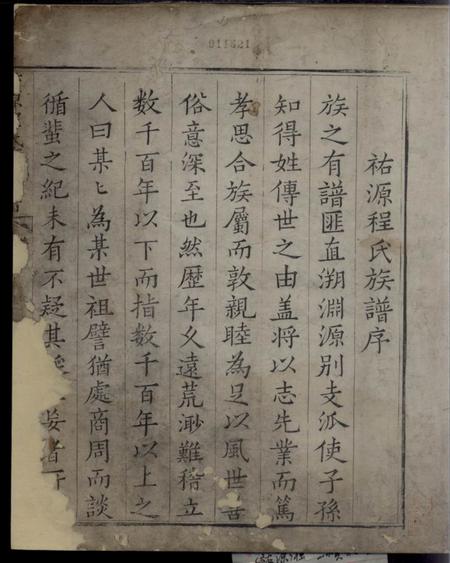 011521
祐源程氏族譜序
族之有譜匪直溯淵源别支派使子孫
知得姓傳世之由盖将以志先業而篤
孝思合族屬而敦親睦為足以風世
俗意深至也然歴年久遠荒渺難稽立
数千百年以下而指数千百年以上之
人曰某〻為某世祖譬猶處商周而談
循蜚之紀未有不疑其